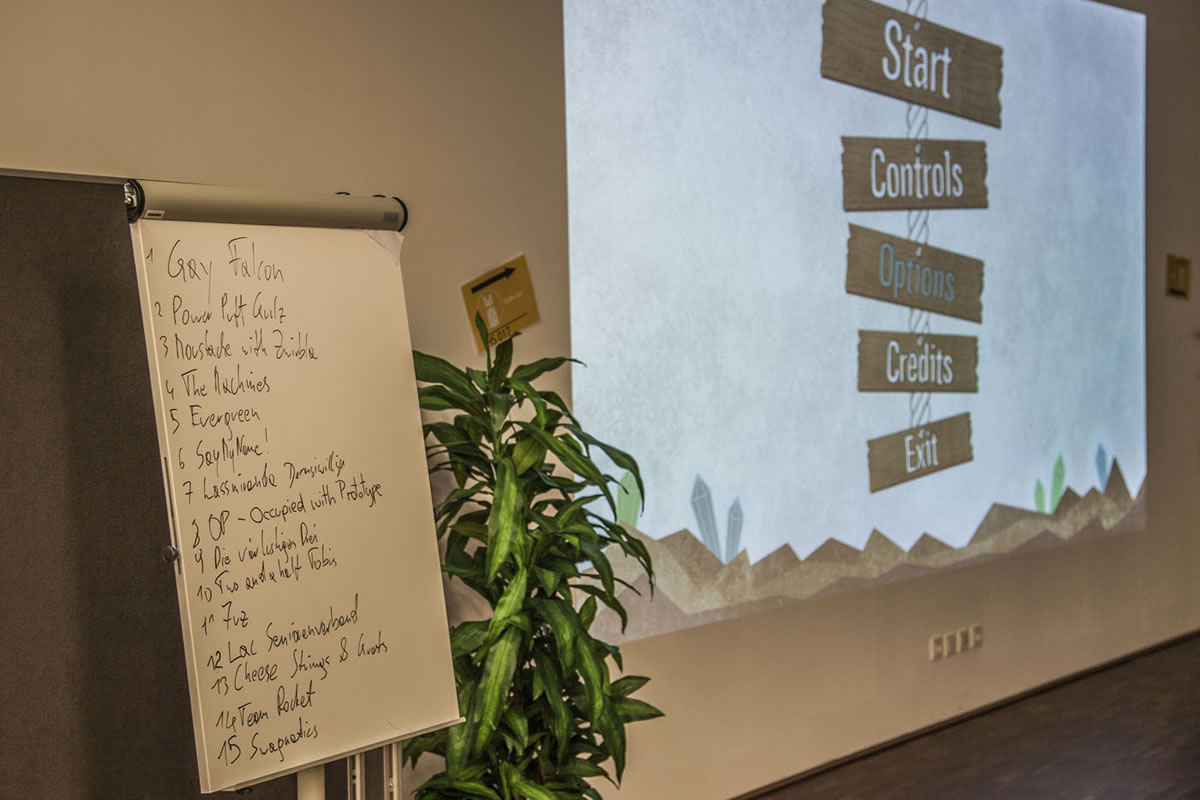 1 Gay Falcon
2 Power Puff Gurlz
3 Moustache with Zwirbla
4 The Machines
5 Evergreen
6 SayMyName!
7 Lassmiranda Dennsiewillja
8 OP - Occupied with Prototype
9 Die vier lustigen Drei
10 Two and a half Tobis
11 7vz
12 Lac Seniorenverband
13 Cheese Strings & Goats
14 Team Rocket
15 Swagnetics
Start
Controls
Options
Credits
Exit